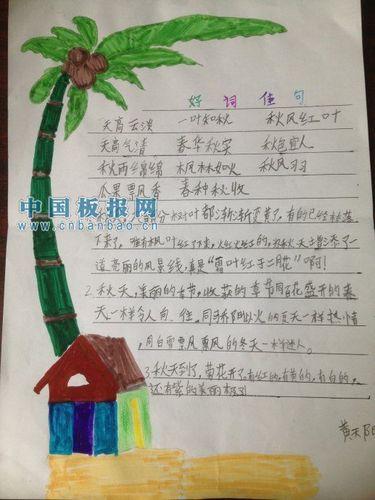 好词佳句
天高云淡 一叶知秋 秋风红叶
天高气清 春华秋实 秋色宜人
秋雨绵绵 枫林如火 秋风习习
瓜果飘香 春种秋收
中国板报网
www.cnbanbao.cn
叶都渐渐变黄了,有的已经枯落
下来了,唯有枫叶红了下来,火红火红的,为秋天增添了一
道亮丽的风景线,真是“霜叶红于二月花”啊!
2.秋天,美丽的季节,收获的章节同百花盛开的春
天一样令人向往,同骄阳似火的夏天一样热情
,同白雪飘飘的冬天一样迷人。
3.秋天到了,菊花开了,有红的,有黄的,有白的,
还有紫的美丽极了